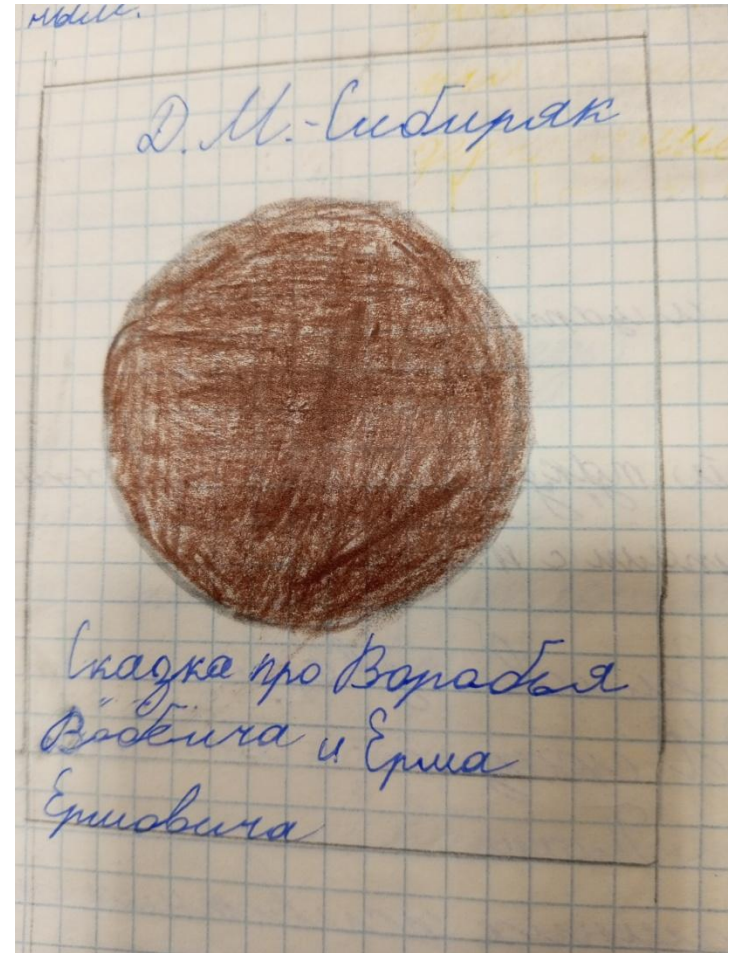 ным.
Д. М.-Сибиряк
Скадка про Варабья
Вобеича и Ерма
Ермовича